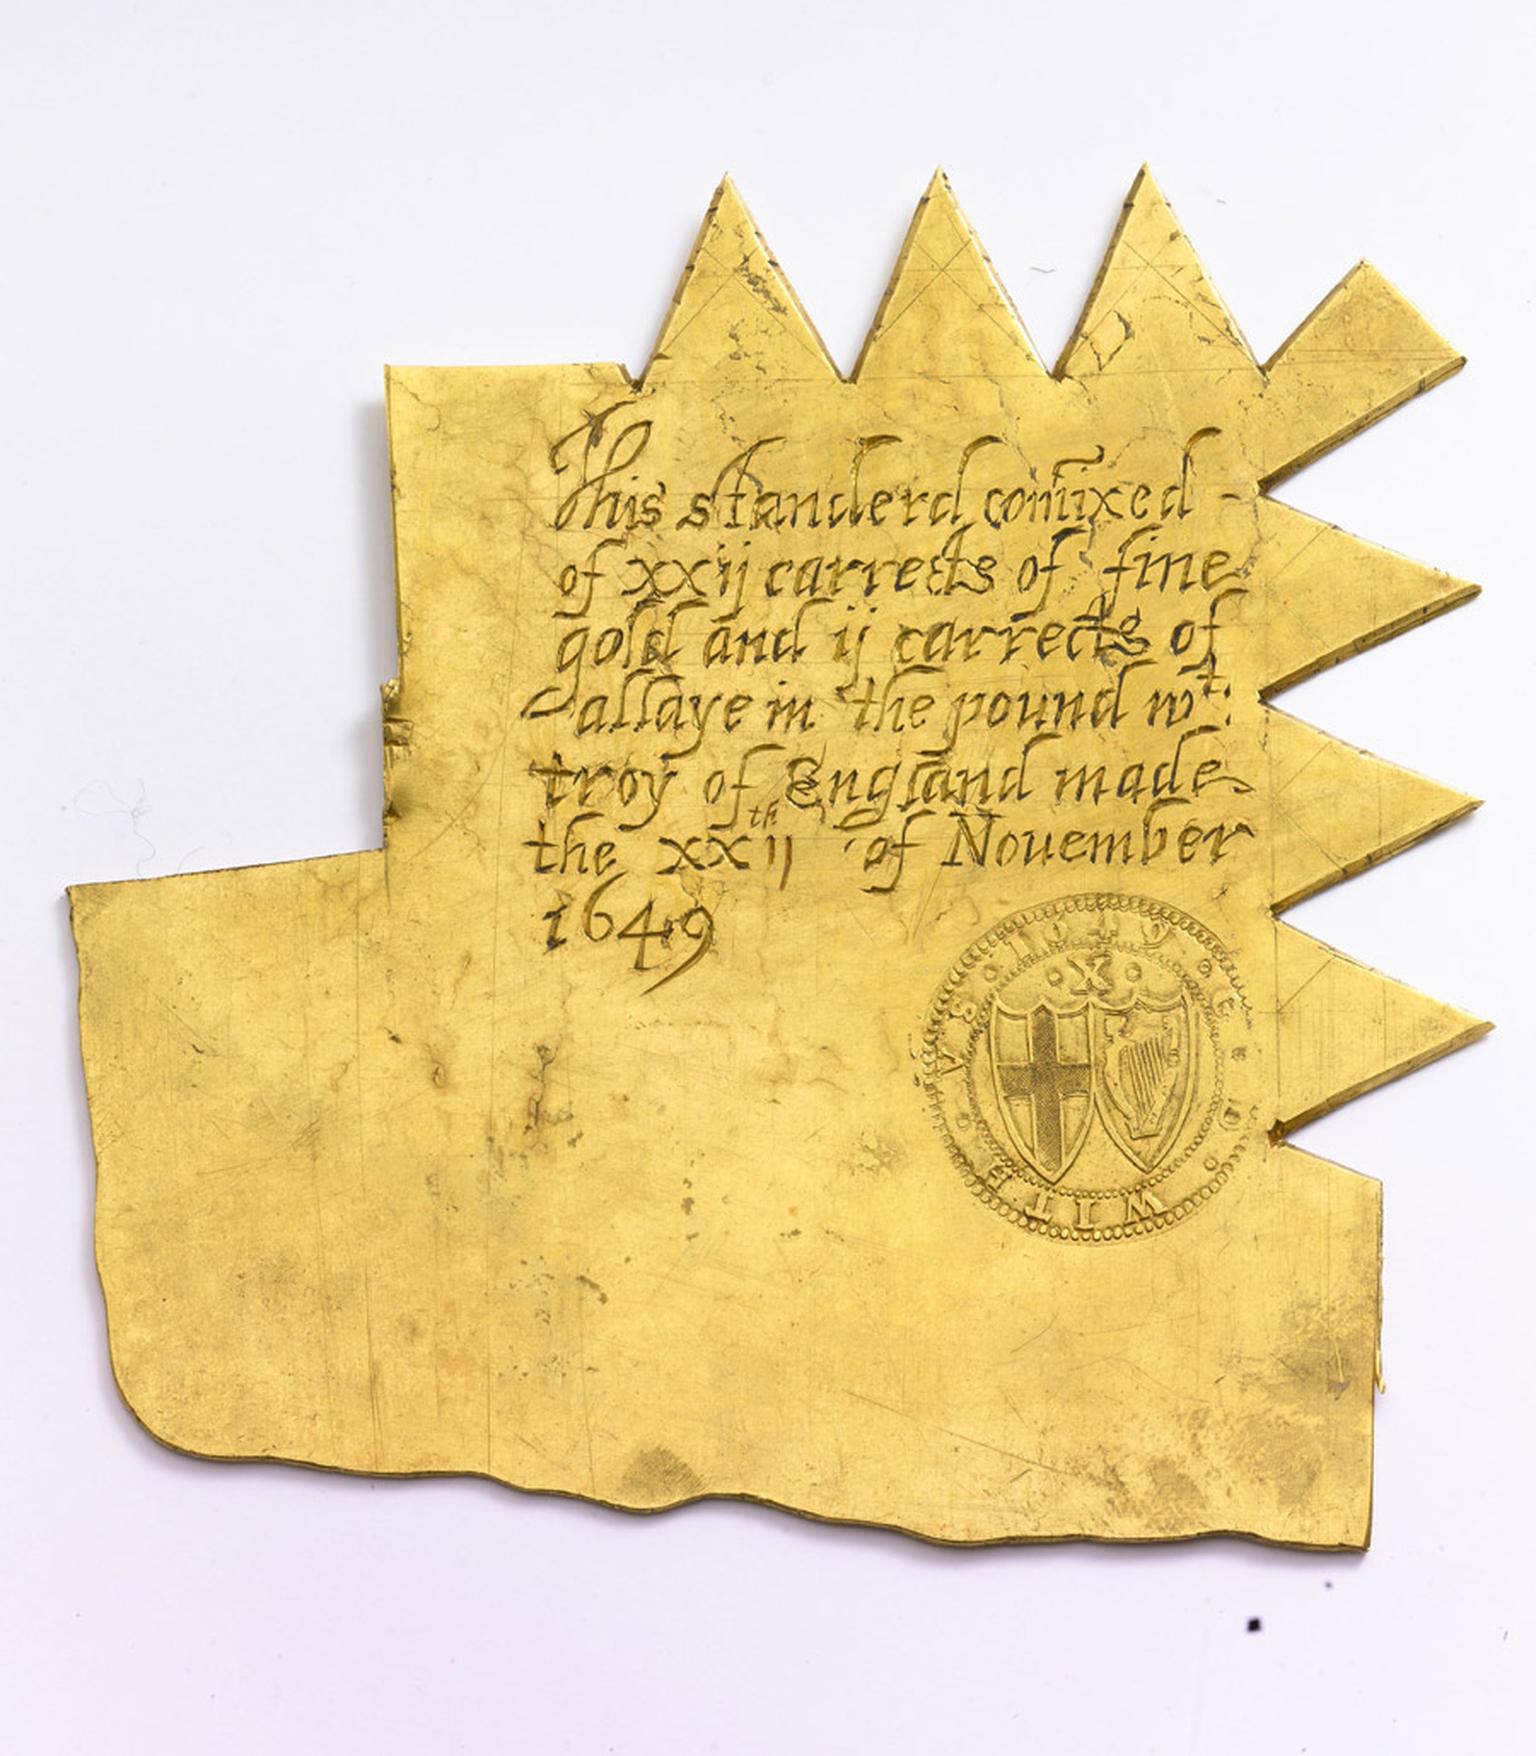 This standerd com̄ixed -
of xxij carrects of fine
gold and ij carrects of
allaye in the pound wt:
troy of England made
the xxijth of November
1649
1649
· X ·
VS
WITH